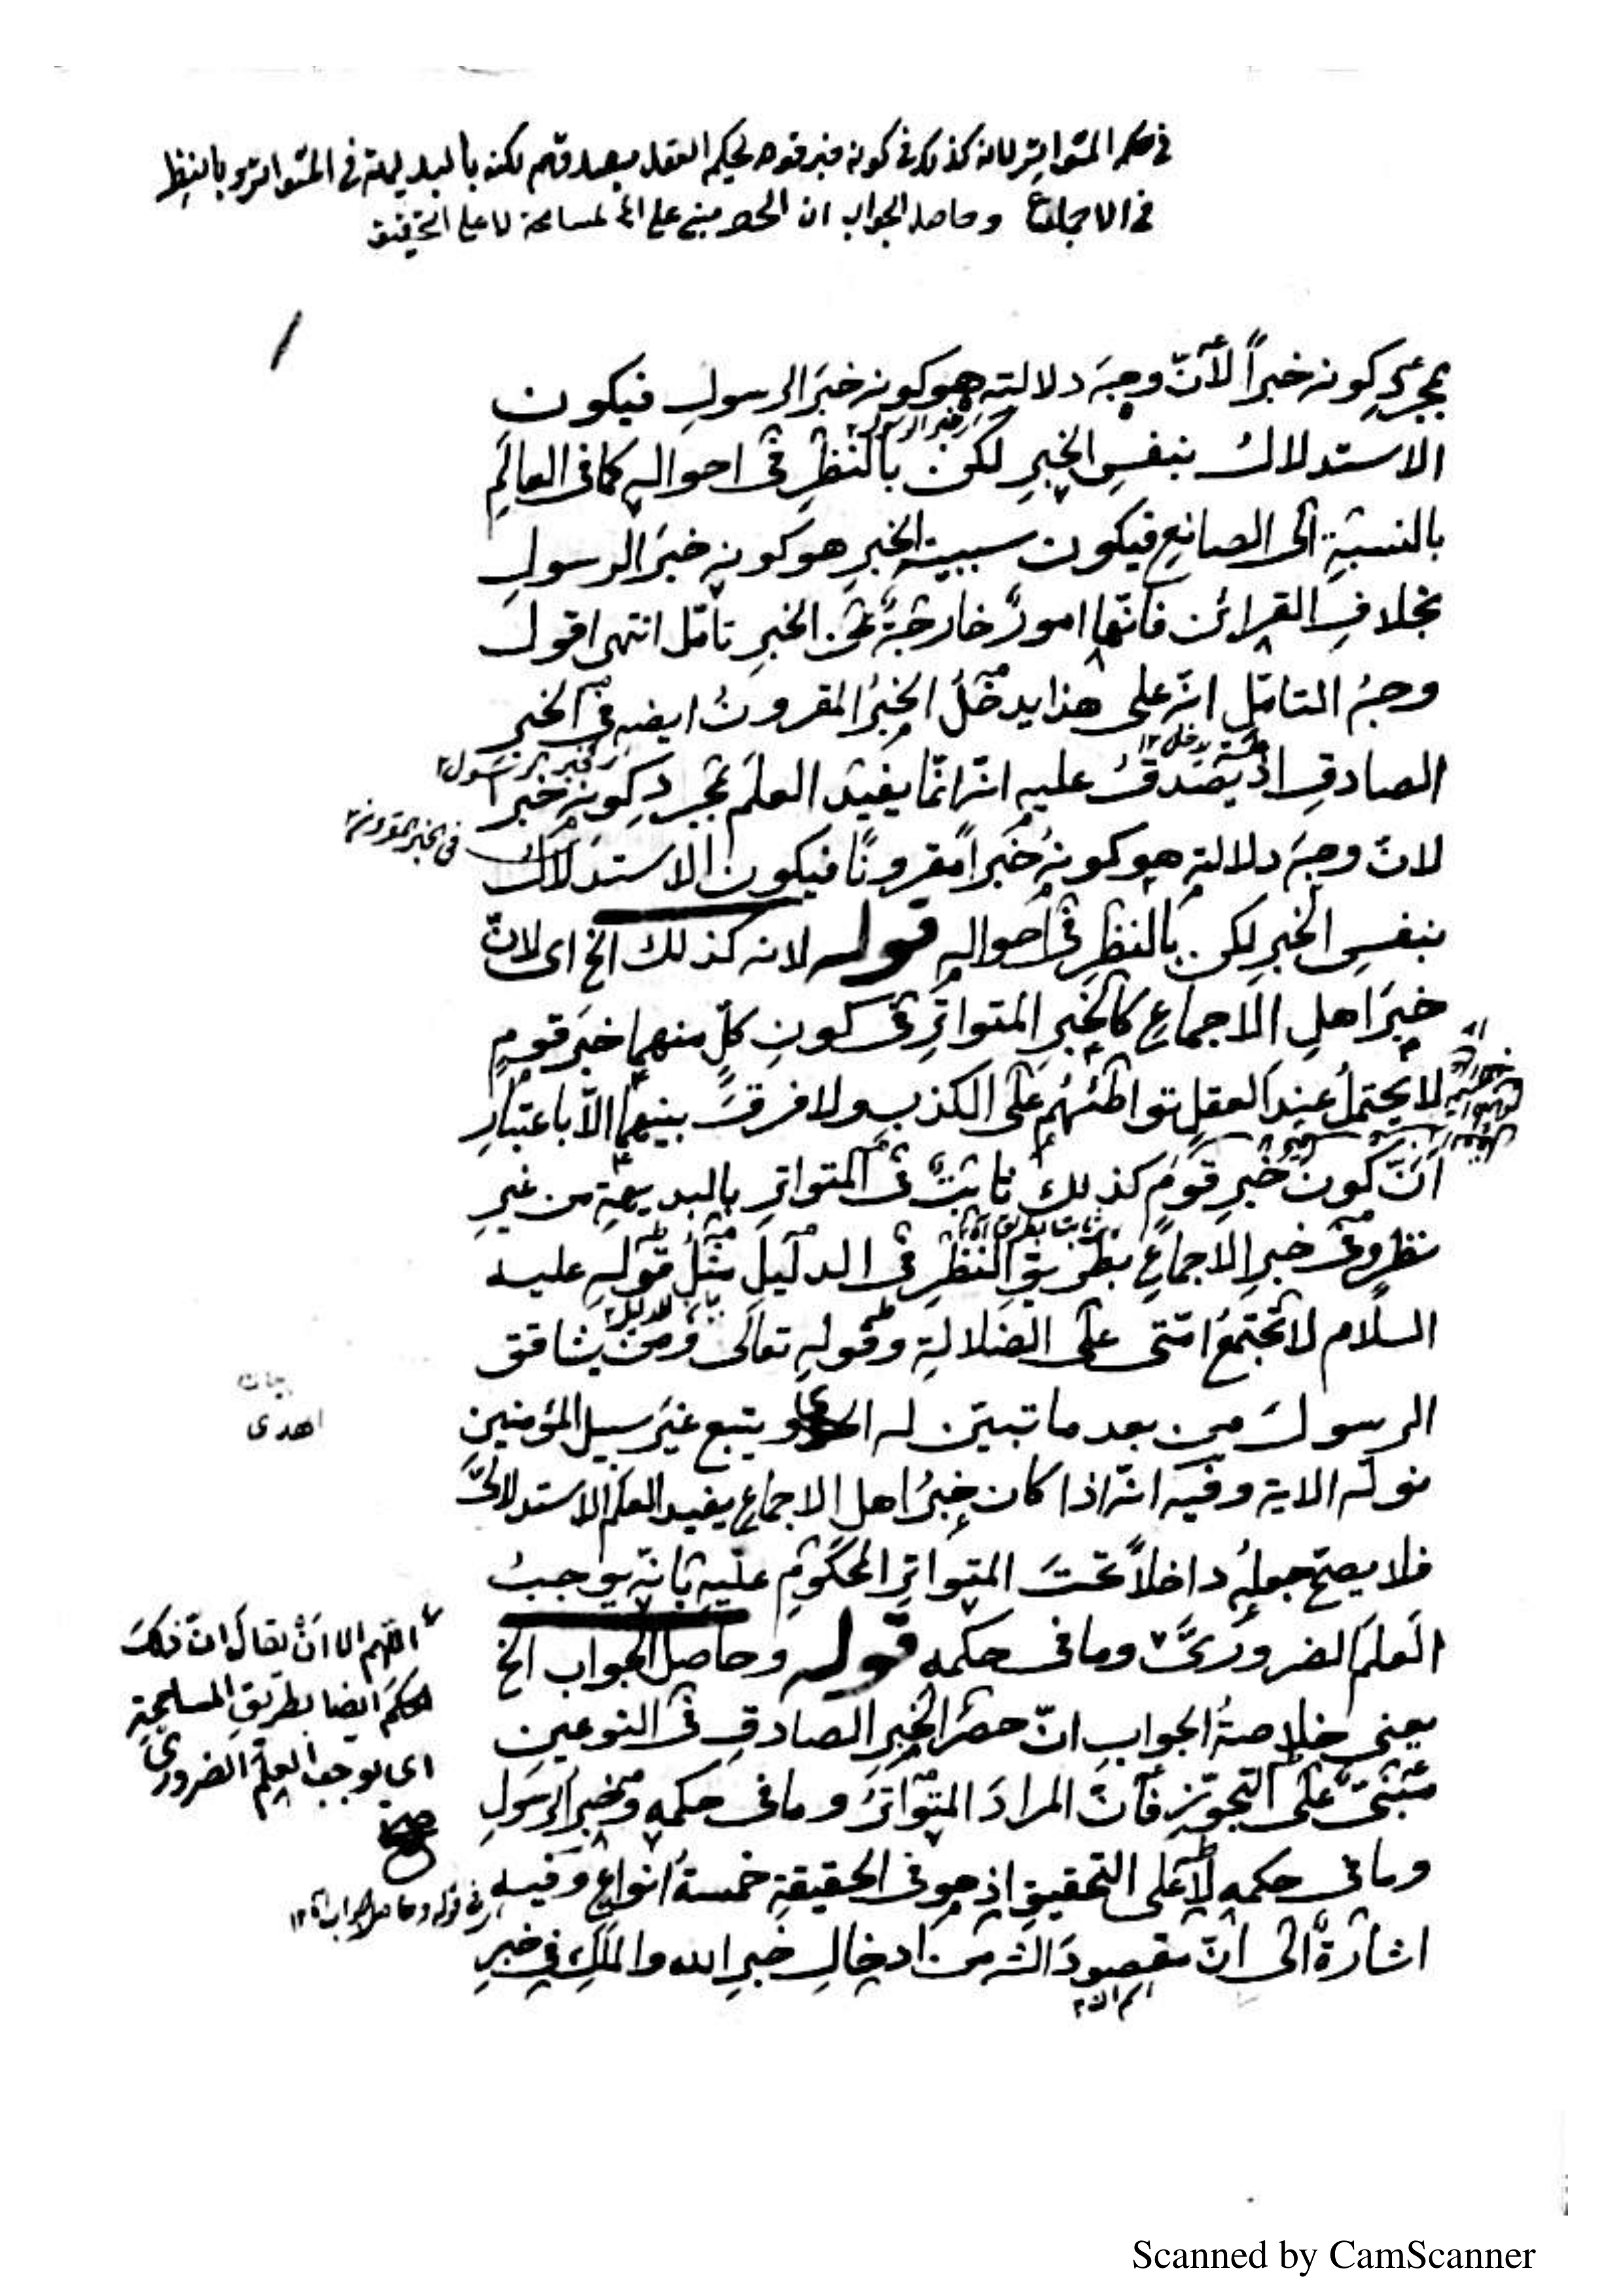 في حكم المتواتر لانه كذلك في كونه خبر قوم يحكم العقل بصدقهم لكنه بالبديهة في المتواتر وبالنظر
في الاجماع وحاصل الجواب ان الحصر مبني على المسامحة لا على التحقيق
بمجرد كونه خبراً لأنّ وجهَ دلالته هو كونه خبَر الرسولِ فيكون
خبر الرسول
الاستدلالُ بنفسِ الخبرِ لكن بالنظرِ فى احواله كما فى العالَمِ
بالنسبةِ الى الصانعِ فيكون سببية الخبرِ هو كونه خبرَ الرسولِ
بخلافِ القرائن فانّها امورٌ خارجةٌ عن الخبرِ تامّل انتهى اقول
وجهُ التامّلِ انّه على هذا يدخُلُ الخبرُ المقرونُ ايضه في الخبر
الصادقِ اذ يَصْدقُ عليه انّه انّما يفيد العلمَ بمجردِ كونِه خبراً
فى الخبر المقرون
لانّ وجهَ دلالتهِ هو كونهُ خبَراً مقروناً فيكون الاستدلال
بنفسِ الخبرِ لكن بالنظرِ فى احواله قوله لانه كذلك الخ اى لانّ
خبرَ اهلِ الاجماعِ كالخبرِ المتواترِ فى كونِ كلٍّ منهما خبرَ قومٍ
لا يحتملُ عند العقلِ تواطئُهُم على الكذبِ ولا فرقَ بينهما الّا باعتبارِ
انّ كونَ خبرِ قومٍ كذلك ثابتٌ فى المتواترِ بالبديهةِ من غيرِ
نظرٍ وفى خبرِ الاجماعِ بطريقِ النظرِ فى الدليلِ مثلُ قولهِ عليه
السلام لا تجتمعُ امّتى على الضلالةِ وقولهِ تعالى ومن يشاقق
الرسولَ من بعد ما تبيّن له الهدى ويتبع غيرَ سبيل المؤمنين
اهدى
نوله الاية وفيه انّه اذا كان خبرُ اهل الاجماع يفيد العلم الاستدلالىَّ
فلا يصحّ جعلُه داخلاً تحتَ المتواترِ المحكومِ عليه بانّه يوجبُ
العلمَ الضرورىَّ وما فى حكمه قوله وحاصل الجواب الخ
اللّهم الا انْ يقالَ انّ ذلك
الحكمَ ايضا بطريقِ المسامحةِ
اى يوجب العلمَ الضرورىَّ
صح
يعنى خلاصةُ الجوابِ انّ حصرَ الخبرِ الصادقِ فى النوعينِ
مبنىٌّ على التجوّزِ فانّ المرادَ المتواترُ وما فى حكمه وخبرُ الرسولِ
وما فى حكمه لا على التحقيقِ اذ هو فى الحقيقةِ خمسةُ انواعٍ وفيه
فى قوله وحاصل الجواب
اشارةٌ الى انّ مقصودَ الشه من ادخالِ خبرِ الله والملَكِ في خبرِ
Scanned by CamScanner